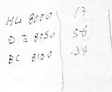 HL 8000 17
DI 8050 56
BC 8100 34